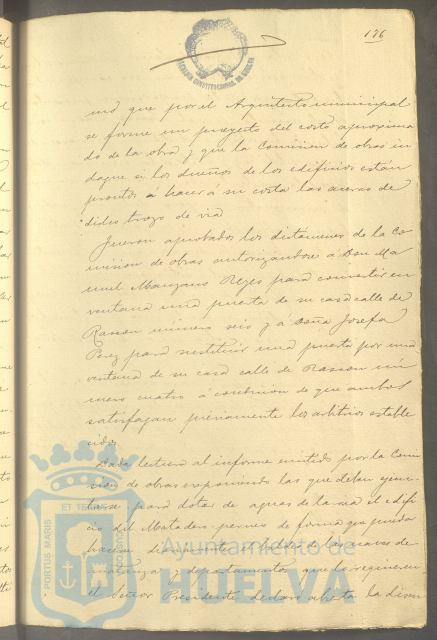 176
nó que por el Arquitecto municipal
se forme un proyecto del costo aproxima
do de la obra y que la Comision de obras in
dague si los dueños de los edificios están
prontos á hacer á su costa las aceras de
dicho trozo de via
Fueron aprobados los dictamenes de la Co
mision de obras autorizándose á Don Ma
nuel Manzano Reyes para convertir en
ventana una puerta de su casa calle de
Rascon número seis y á Doña Josefa
Perez para sustituir una puerta por una
ventana de su casa calle de Rascon nú
mero cuatro á condicion de que ambos
satisfagan préviamente los arbitrios estable
cidos
Dada lectura al informe emitido por la Comi
sion de obras exponiendo las que deban ejecu
tarse para dotar de aguas de la ria el edifi
cio del Matadero
de forma que pueda
hacerse diariamente el baldeo de las naves de
matanza y departamentos que lo requieren
el Señor Presidente declaró abierta la discu
PORTUS MARIS
ET TERRAE
CUSTODIA
Ayuntamiento de
HUELVA